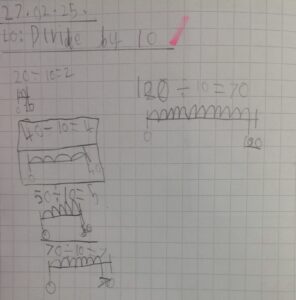 27.02.25.
to: Divide by 10
20÷10=2
0 20
40÷10=4
0
50÷10=5
0
70÷10=7
0 70
120÷10=70
0 120